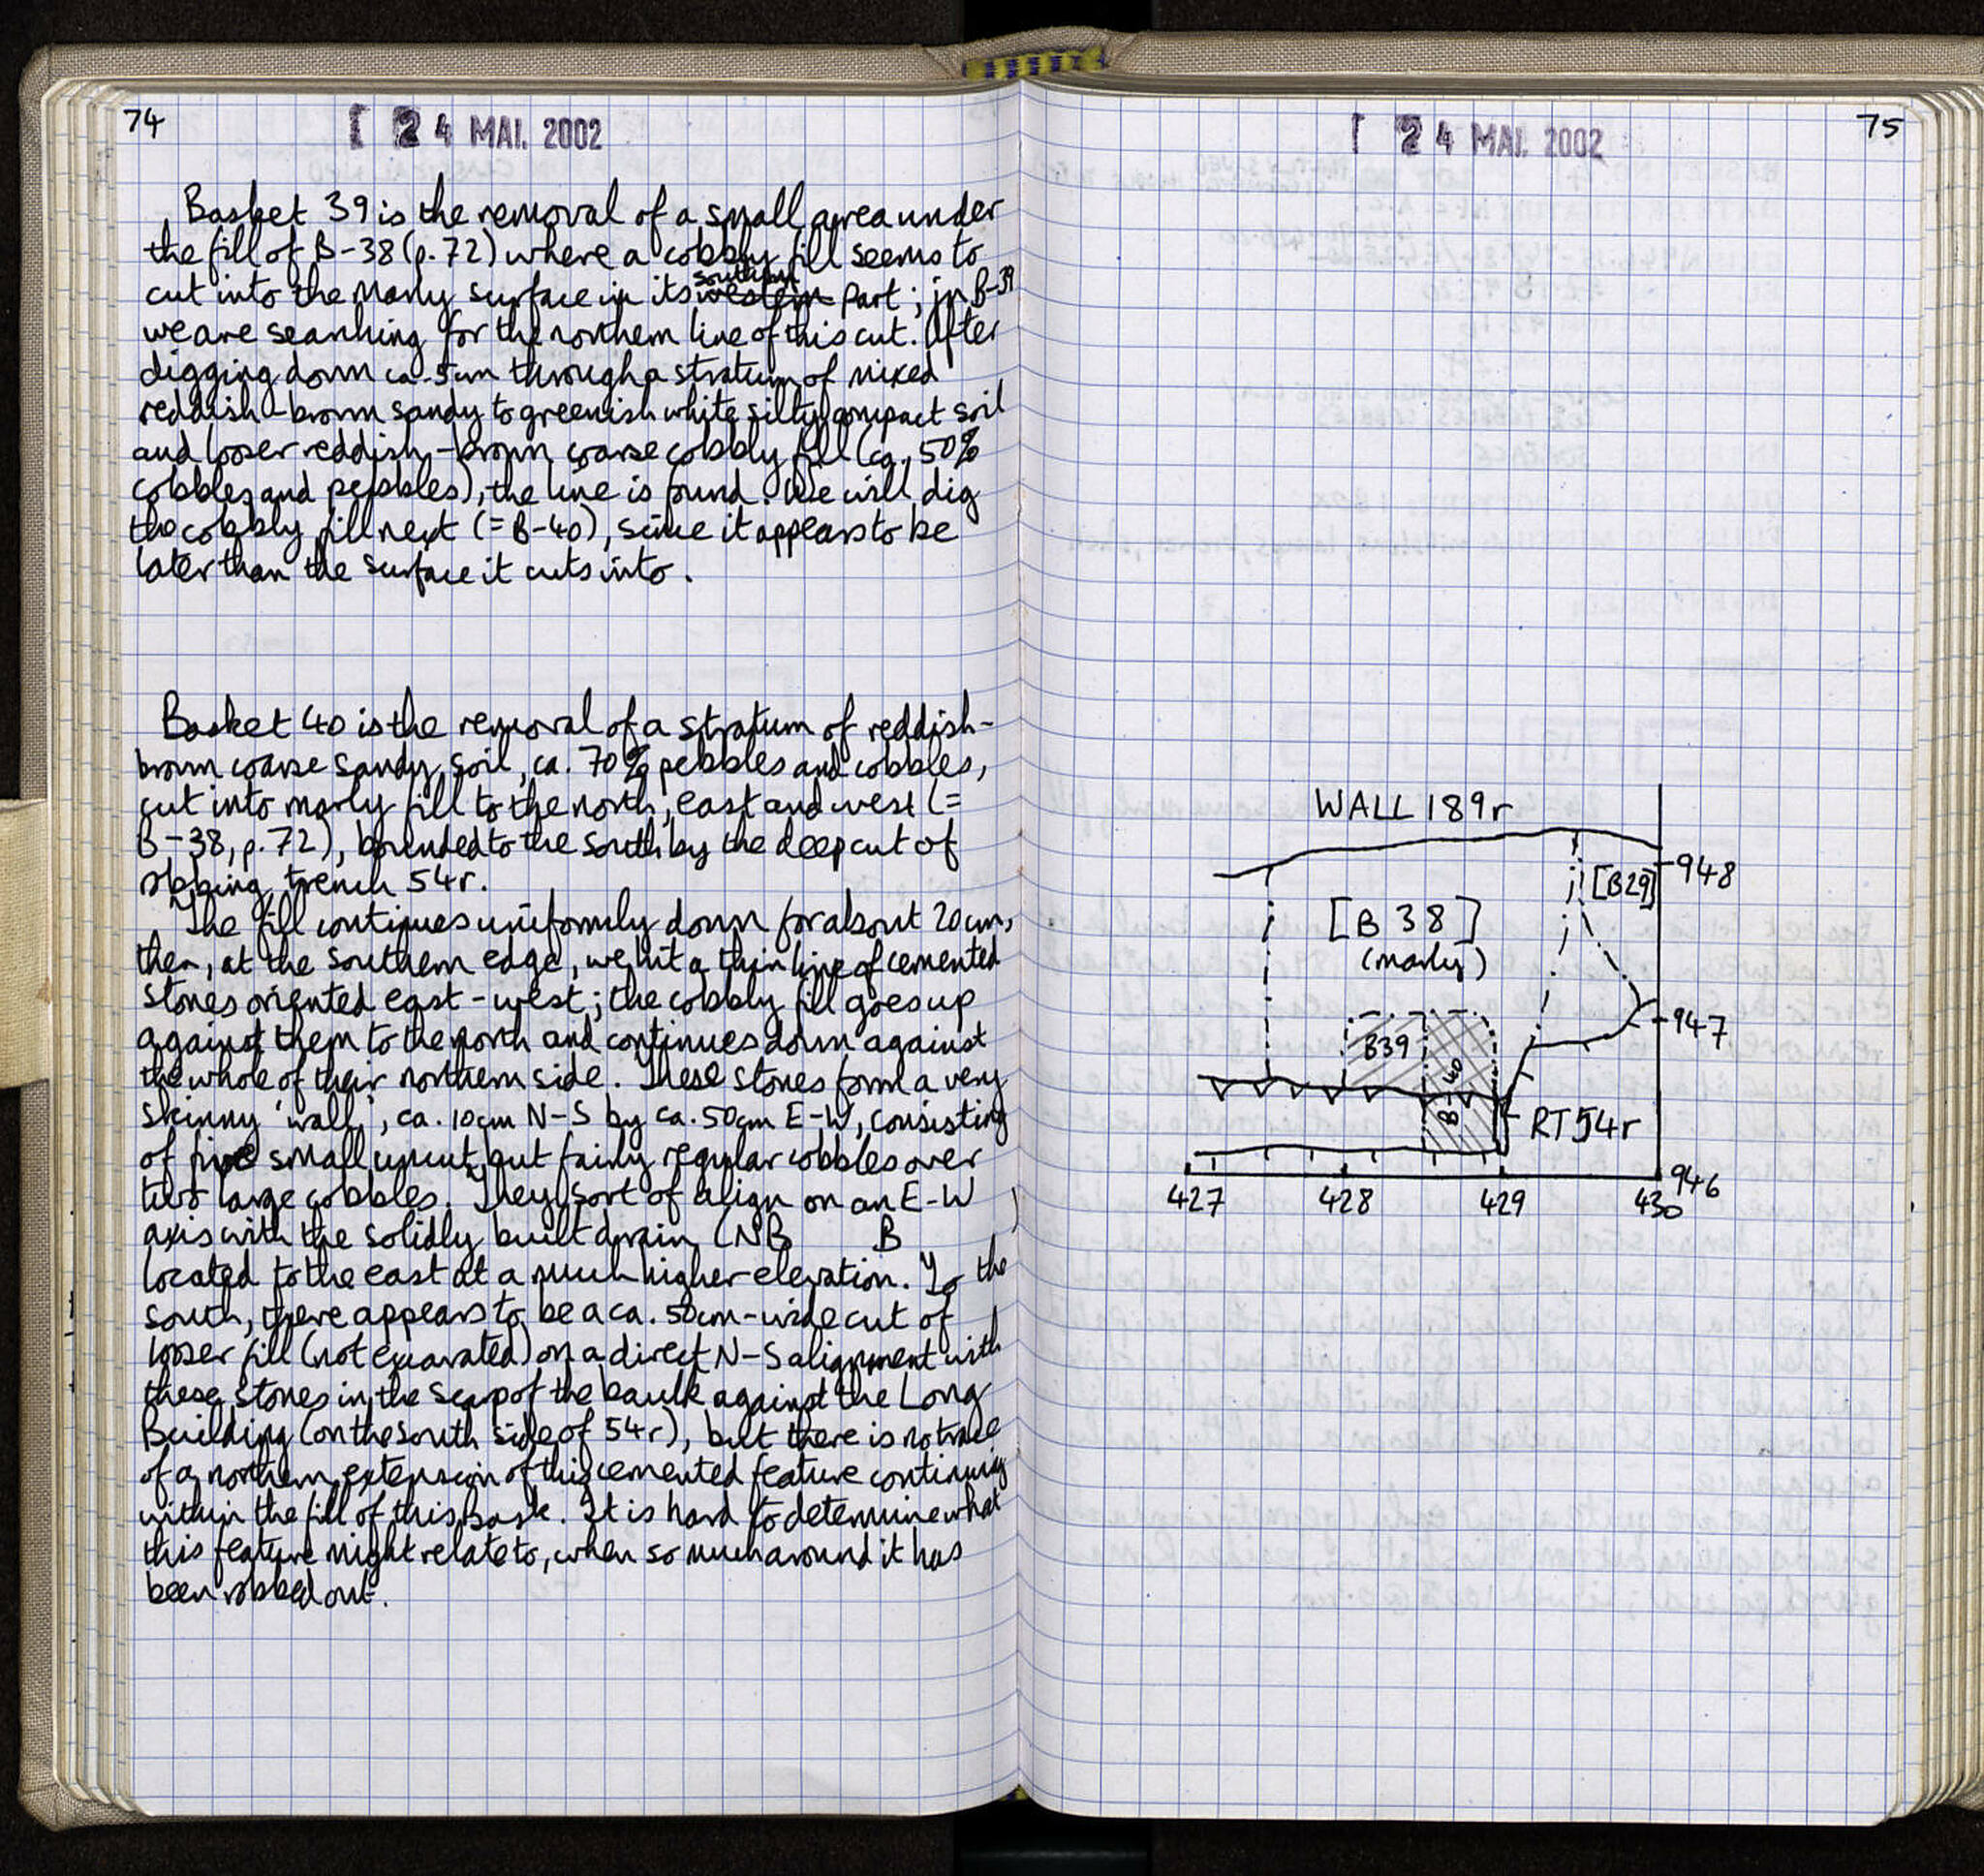 74
[ 24 MAI. 2002
Basket 39 is the removal of a small area under
the fill of B-38 (p. 72) where a cobbly fill seems to
cut into the marly surface in its western southern part; in B-39
we are searching for the northern line of this cut. After
digging down ca. 5cm through a stratum of mixed
reddish-brown sandy to greenish white silty compact soil
and looser reddish-brown coarse cobbly fill (ca. 50%
cobbles and pebbles), the line is found. We will dig
the cobbly fill next (= B-40), since it appears to be
later than the surface it cuts into.
Basket 40 is the removal of a stratum of reddish-
brown coarse sandy soil, ca. 70% pebbles and cobbles,
cut into marly fill to the north, east and west (=
B-38, p. 72), bounded to the south by the deep cut of
robbing trench 54r.
The fill continues uniformly down for about 20cm,
then, at the southern edge, we hit a thin line of cemented
stones oriented east-west; the cobbly fill goes up
against them to the north and continues down against
the whole of their northern side. These stones form a very
skinny 'wall', ca. 10cm N-S by ca. 50cm E-W, consisting
of five small uncut but fairly regular cobbles over
two large cobbles. They sort of align on an E-W
axis with the solidly built drain (NB B )
located to the east at a much higher elevation. To the
south, there appears to be a ca. 50cm-wide cut of
looser fill (not excavated) on a direct N-S alignment with
these stones in the scarp of the baulk against the Long
Building (on the south side of 54r), but there is no trace
of a northern extension of this cemented feature continuing
within the fill of this bask. It is hard to determine what
this feature might relate to, when so much around it has
been robbed out.
[ 24 MAI. 2002
75
WALL 189r
948
[B29]
[B 38]
(marly)
947
B39
B-40
RT54r
946
427 428 429 430